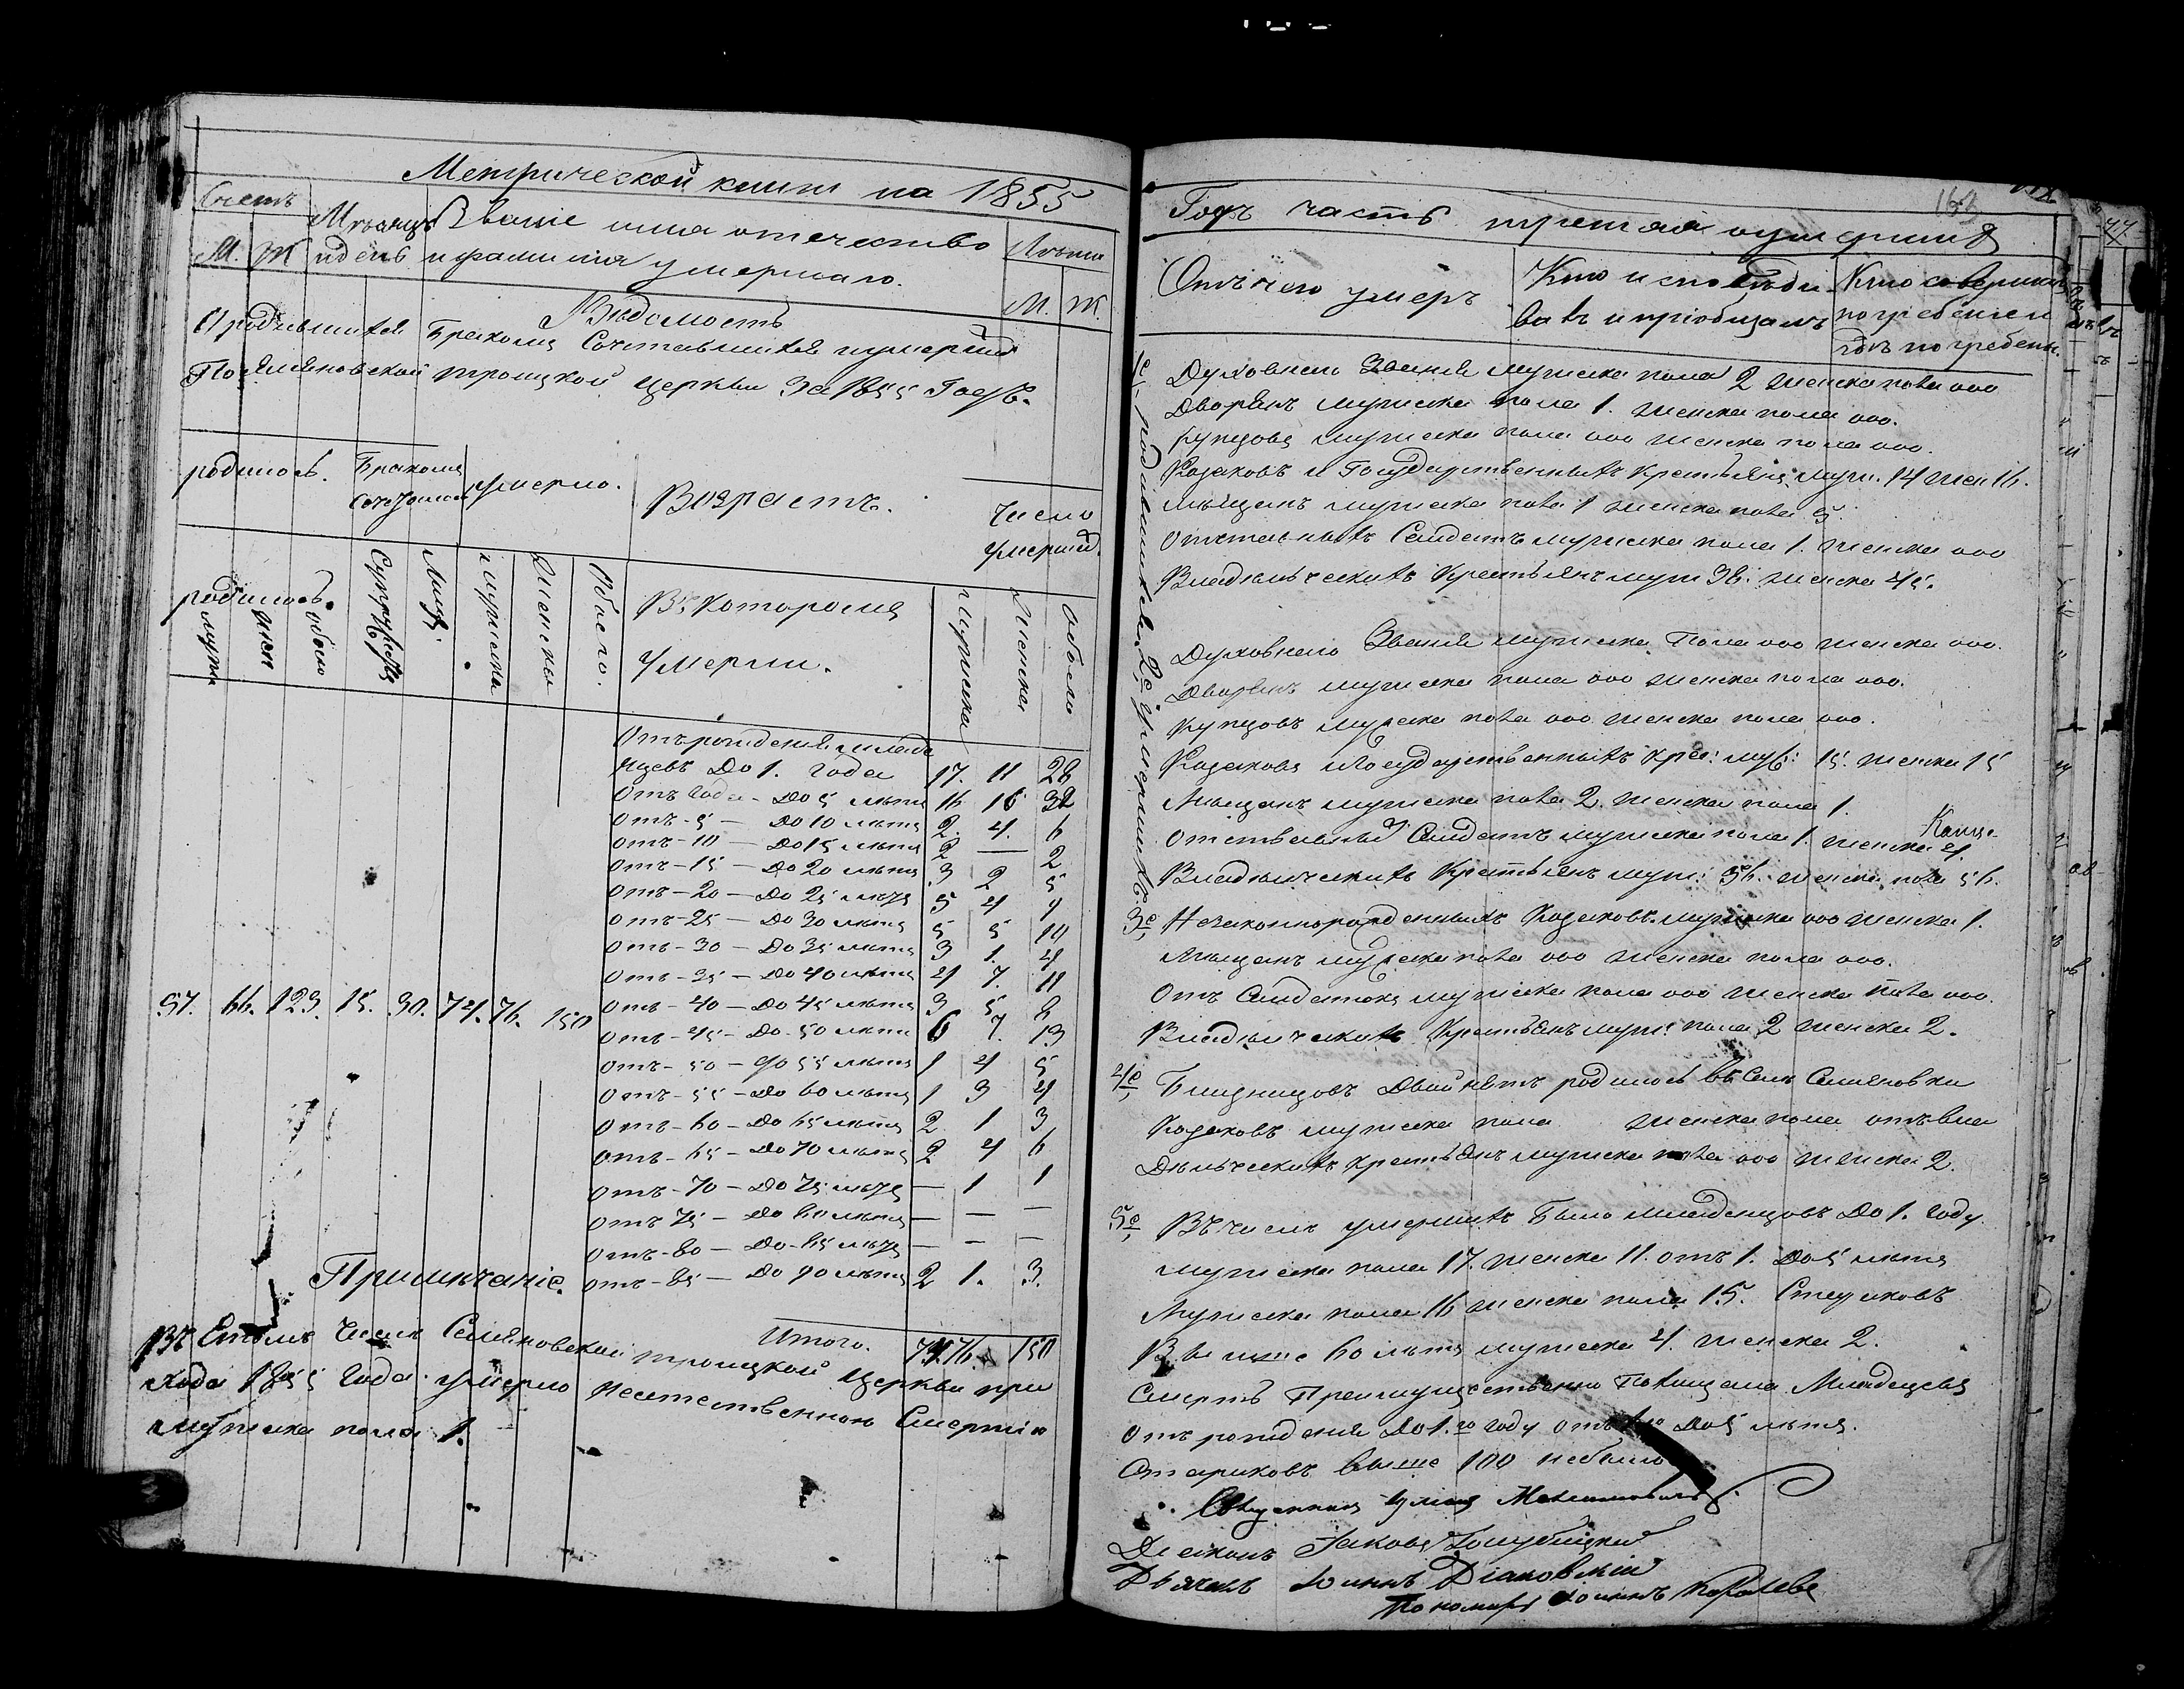 Метрической книги на 1855
Счетъ
М. Ж
Мѣсяцъ
и день
Званіе имя отечество
и фамилія умершаго.
Лѣта
М. Ж.
Вѣдомость
О родившихся бракомъ сочетавшихся и умершихъ
По Семяновской Троицкой Церкви за 1855 Годъ.
родилось.
Бракомъ
сочеталось
умерло.
Возрастъ.
Число
умершихъ.
родилось.
мужска
жен
обоего
Супружествъ
Лицъ.
Мужска
Женска
Обоего.
Въ которомъ
умерли.
Мужска
Женска
обоего
57. 66. 123. 15. 30. 74. 76. 150
Отъ рожденія младе
нцевъ до 1. года 17. 11 28
Отъ года - до 5 лѣтъ 16 16 32
Отъ - 5 — до 10 лѣтъ 2. 4. 6
Отъ - 10 — до 15 лѣтъ 2 — 2
Отъ - 15 — до 20 лѣтъ 3 2 5
Отъ - 20 — до 25 лѣтъ 5 4 9
Отъ - 25 — до 30 лѣтъ 5 5 10
Отъ - 30 — до 35 лѣтъ 3 1. 4
Отъ - 35 — до 40 лѣтъ 4 7. 11
Отъ - 40 — до 45 лѣтъ 3 5 8
Отъ - 45 — до - 50 лѣтъ 6 7. 13
Отъ - 50 — до 55 лѣтъ 1 4 5
Отъ - 55 — до 60 лѣтъ 1 3 4
Отъ - 60 — до 65 лѣтъ 2 1 3
Отъ - 65 — до 70 лѣтъ 2 4 6
Отъ - 70 — до 75 лѣтъ — 1 1
Отъ 75 — до 80 лѣтъ — — —
Отъ - 80 — до - 85 лѣтъ — — —
Отъ - 85 — до 90 лѣтъ 2 1. 3.
Итого. 74 76. 150
Примѣчаніе.
Въ Етомъ числѣ Семяновской Троицкой Церкви при
хода 1855 года умерло неестественною смертію
мужска пола 1.
Годъ часть третія оумершихъ
Отъ чего умеръ
Кто исповѣды
валъ и пріобщалъ
Кто совершалъ
погребеніе и
гдѣ погребены.
1е, родившихся
Духовнаго Званія мужска пола 2 женска пола ооо
Дворянъ мужска пола 1. женска пола ооо.
Купцовъ мужска пола ооо женска пола ооо.
Козаковъ и Государственныхъ Крестьянъ муж. 14 жен 16.
Мѣщанъ мужска пола 1 женска пола 5.
Отставныхъ Солдатъ мужска пола 1. женска ооо
Владѣльческихъ Крестьянъ муж 38. женска 45.
2е, умершихъ
Духовнаго Званія мужска Пола ооо женска ооо.
Дворянъ мужска пола ооо женска пола ооо.
Купцовъ мужска пола ооо женска пола ооо.
Козаковъ и Государственныхъ Крес: муж: 15. женска 15
Мѣщанъ мужска пола 2. женска пола 1.
Отставныхъ Солдатъ мужска пола 1. женска 4.
Владѣлческихъ Крестьянъ муж: 56. женска пола 56.
3е, Незаконнорожденныхъ Козаковъ мужска ооо женска 1.
Мѣщанъ мужска пола ооо женска пола ооо.
Отъ Солдатокъ мужска пола ооо женска пола ооо.
Владѣлческихъ Крестьянъ муж: пола 2 женска 2.
4е, Близнецовъ Двойнятъ родилось въ Селѣ Семяновки
Козаковъ мужска пола женска пола отъ вла
дѣльческихъ крестьянъ мужска пола ооо женска 2.
5е, Въ числѣ умершихъ было младенцовъ до 1. году
мужска пола 17. женска 11. отъ 1. до 5 лѣтъ
Мужска пола 16 женска пола 15. Стариковъ
Выше 60 лѣтъ мужска 4. женска 2.
Смерть Преимущественно Похищала Младенцевъ
Отъ рожденія до 1.го году отъ 1го до 5 лѣтъ.
Стариковъ выше 100 небыло
Діаконъ Іаковъ Голубицкій
Дьячекъ Іоаннъ Діаковскій
Пономарь Іоаннъ